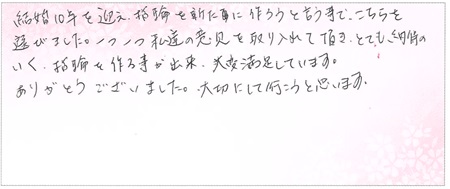 結婚10年を迎え、指輪を新た事に作ろうと言う事で、こちらを
選びました。一つ一つ私達の意見を取り入れて頂き、とても納得の
いく、指輪を作る事が出来、大変満足しています。
ありがとうございました。大切にして行こうと思います。